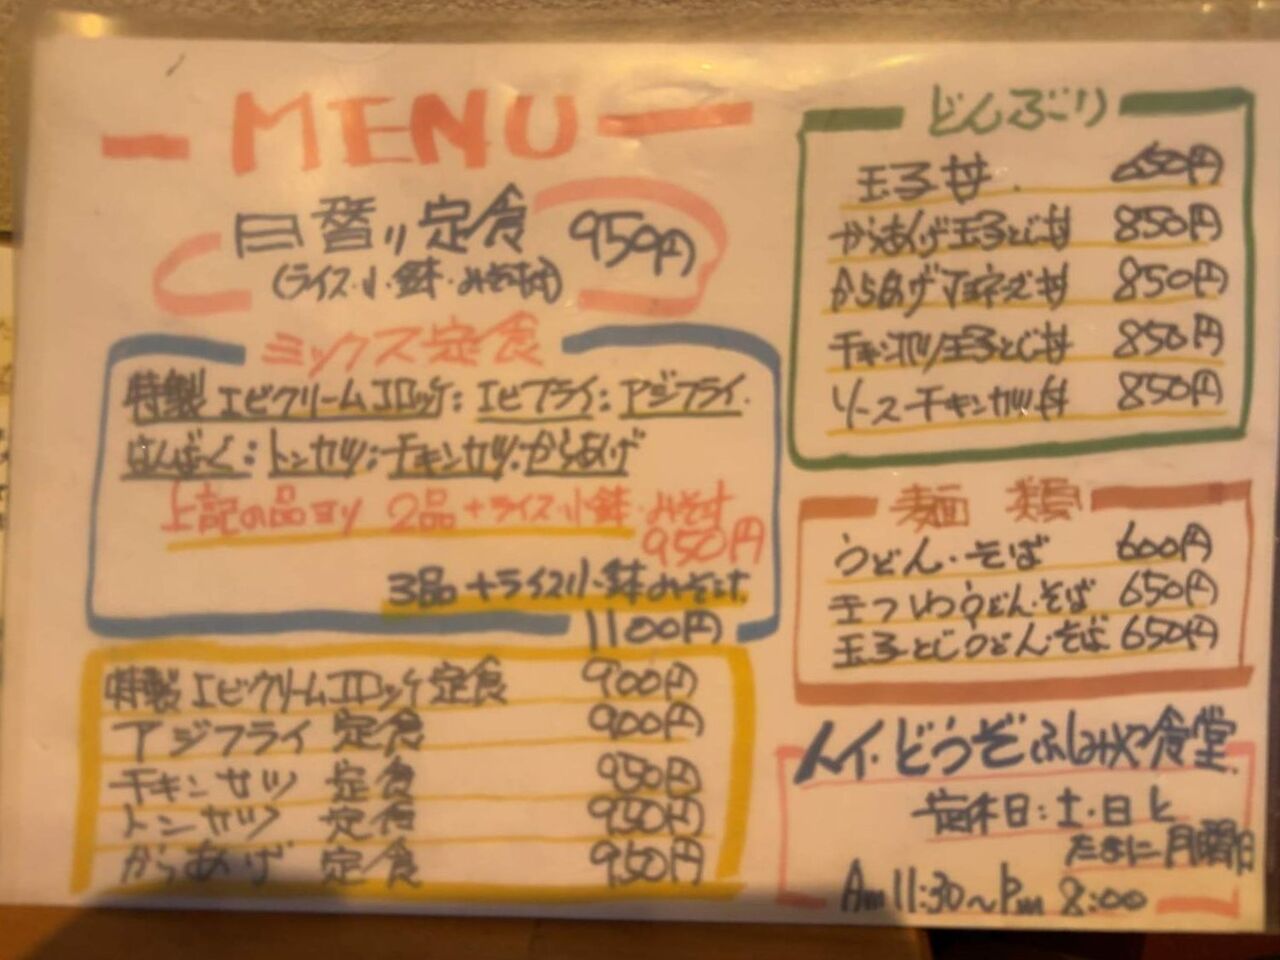 MENU
日替り定食 950円
(ライス・小鉢・みそ汁付)
ミックス定食
特製エビクリームコロッケ:エビフライ:アジフライ.
はんばーぐ:トンカツ:チキンカツ:からあげ
上記の品ヨリ 2品+ライス・小鉢・みそ汁
950円
3品+ライス小鉢みそ汁
1100円
特製エビクリームコロッケ定食 900円
アジフライ 定食 900円
チキンカツ 定食 950円
トンカツ 定食 950円
からあげ 定食 950円
どんぶり
玉子丼. 650円
からあげ玉子とじ丼 850円
からあげマヨネーズ丼 850円
チキンカツ玉子とじ丼 850円
ソースチキンカツ丼 850円
麺類
うどん・そば 600円
うどん・そば 650円
玉子とじうどん・そば 650円
ハイ・どうぞふしみや食堂.
定休日:土・日と
たまに月曜日
Am11:30〜Pm 8:00